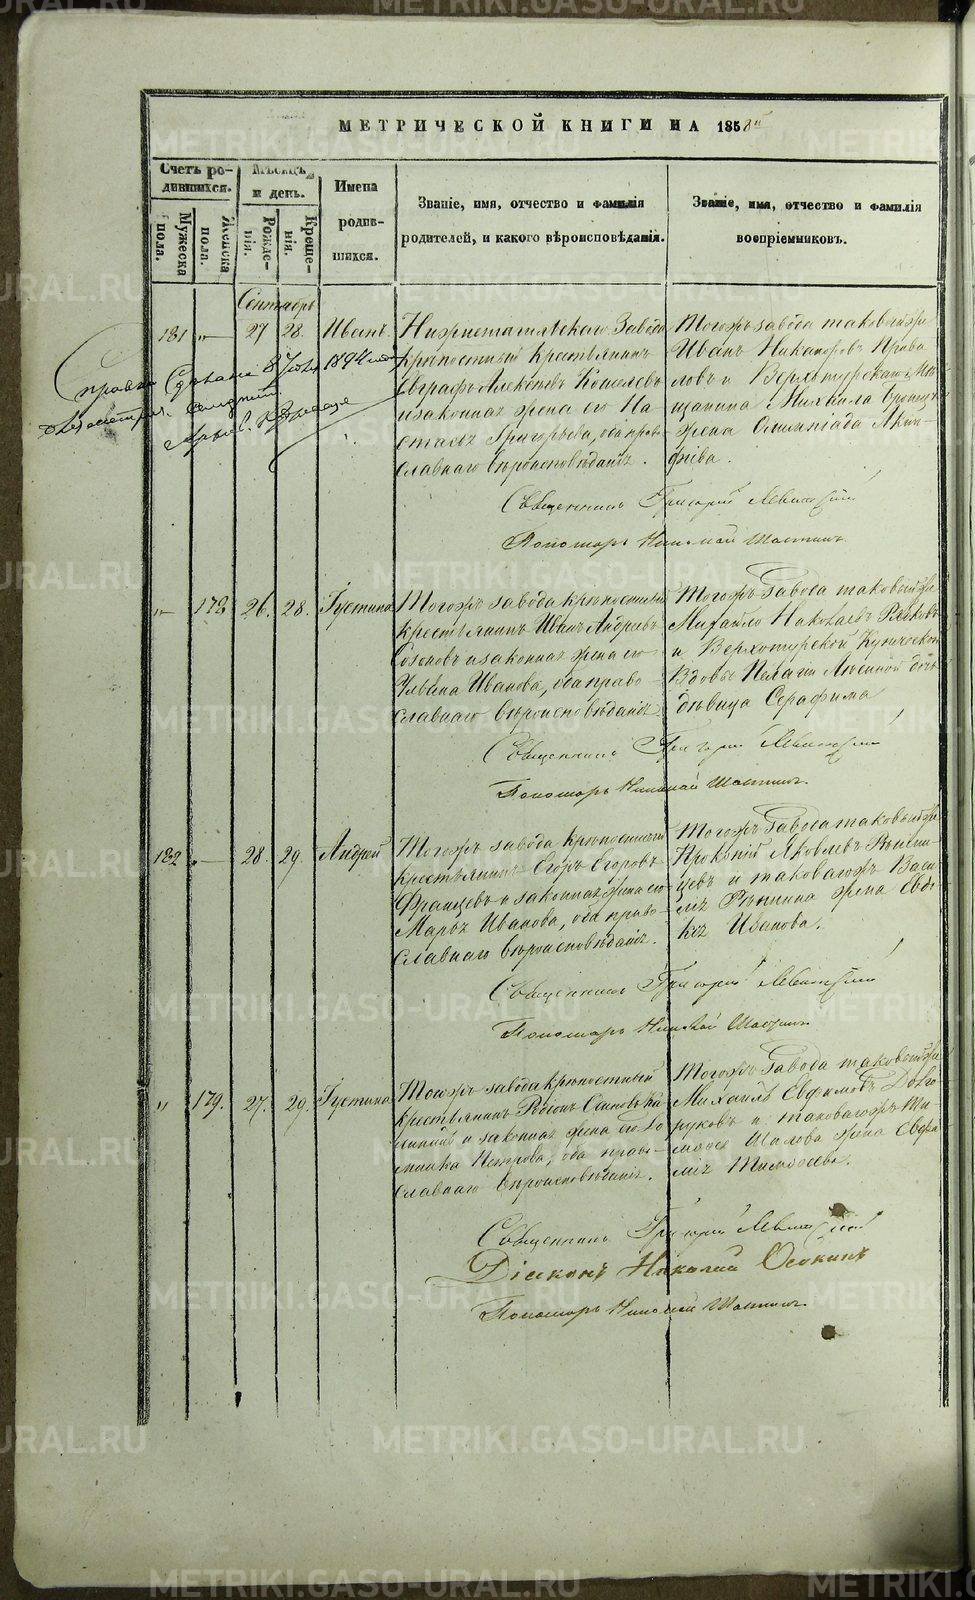 МЕТРИЧЕСКОЙ КНИГИ НА 1858й
Счетъ ро-
дившихся.
Мужеска
пола.
Женска
пола.
Мѣсяцъ
и день.
Рожде-
нія.
Креще-
нія.
Имена
родив-
шихся.
Званіе, имя, отчество и фамилія
родителей, и какого вѣроисповѣданія.
Званіе, имя, отчество и фамилія
воспріемниковъ.
Сентябрь
181 „— 27 28. Иванъ.
Нижнетагильскаго Завода
крѣпостный крестьянинъ
Евграфъ Алексѣевъ Кошелевъ
и законная жена его На
сталья Григорьева, оба право
славнаго вѣроисповѣданія.
Тогожъ завода таковый же
Иванъ Никаноровъ Прива
ловъ и Верхотурскаго Мѣ
щанина Михаила
жена Олимпіада Акин-
фіева.
Справка 8 Іюля 1894 года
Священникъ Григорій Левитскій
Пономарь Николай Шастинъ
„— 178 26. 28. Густина
Тогожъ завода крѣпостный
крестьянинъ Иванъ Андреевъ
Созоновъ и законная жена его
Ульяна Иванова, оба право-
славнаго вѣроисповѣданія
Тогожъ Завода таковый же
Михайло Николаевъ Рябковъ
и Верхотурской Купеческой
Вдовы Пелагіи дочь
дѣвица Серафима
Священникъ Григорій Левитскій
Пономарь Николай Шастинъ.
182 „— 28. 29. Андрей
Тогожъ завода крѣпостный
крестьянинъ Егоръ Егоровъ
Францевъ и законная жена его
Марья Иванова, оба право-
славнаго вѣроисповѣданія.
Тогожъ Завода таковый же
Прокопій Яковлевъ
цевъ и таковагожъ Васи-
лья жена Евдо
кія Иванова.
Священникъ Григорій Левитскій
Пономарь Николай Шастинъ
„ 179. 27. 29. Густина
Тогожъ завода крѣпостный
крестьянинъ Родіонъ
и законная жена его До
мника Петрова, оба право-
славнаго вѣроисповѣданія.
Тогожъ Завода таковый же
Михаилъ Евфимовъ Долго
руковъ и таковагожъ Ти-
мофея Шалова жена Евфи
мія Тимофеева.
Священникъ Григорій Левитскій
Діаконъ Николай Осокинъ
Пономарь Николай Шастинъ
METRIKI.GASO-URAL.RU